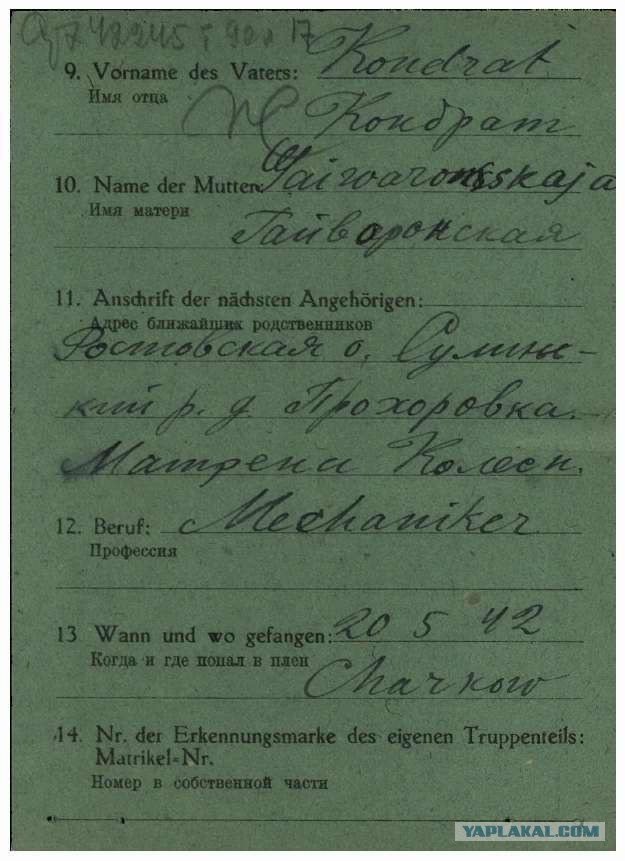 9. Vorname des Vaters: Kondrat
Имя отца
Кондрат
10. Name der Mutter: Gaiwaronsskaja
Имя матери
Гайворонская
11. Anschrift der nächsten Angehörigen:
Адрес ближайших родственников
Ростовская о. Сулинс-
кий р. д. Прохоровка.
Матрени Колесн.
12. Beruf: Mechaniker
Профессия
13 Wann und wo gefangen: 20 5 42
Когда и где попал в плен
Charkow
14. Nr. der Erkennungsmarke des eigenen Truppenteils:
Matrikel=Nr.
Номер в собственной части
YAPLAKAL.COM